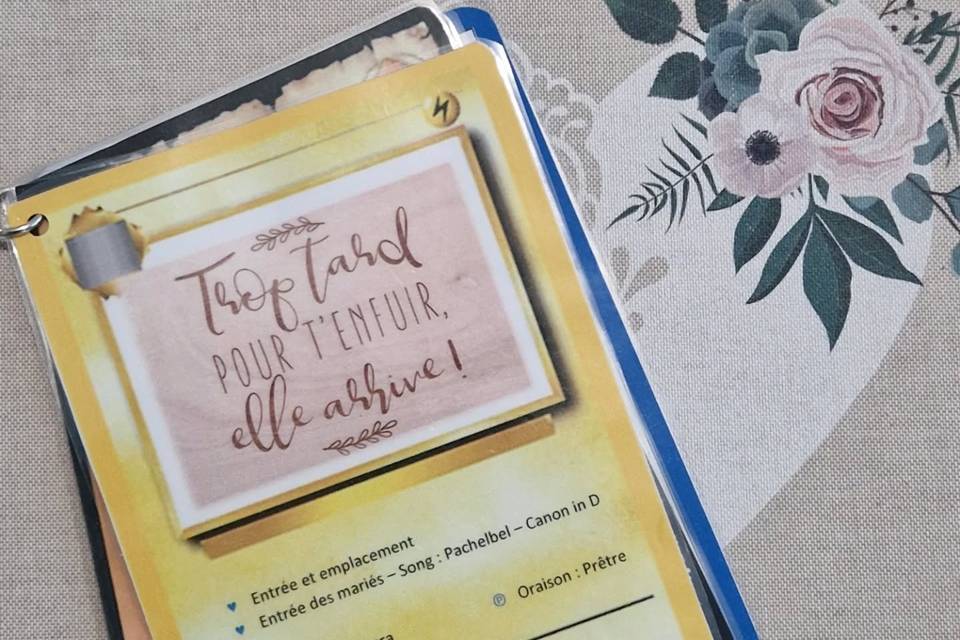 Trop tard
POUR T'ENFUIR,
elle arrive !
Entrée et emplacement
Entrée des mariés – Song : Pachelbel – Canon in D
℗ Oraison : Prêtre